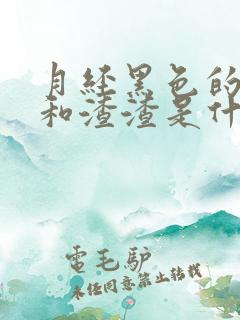 月经黑色的
和渣渣是什
電毛驴
未经同意禁止转载